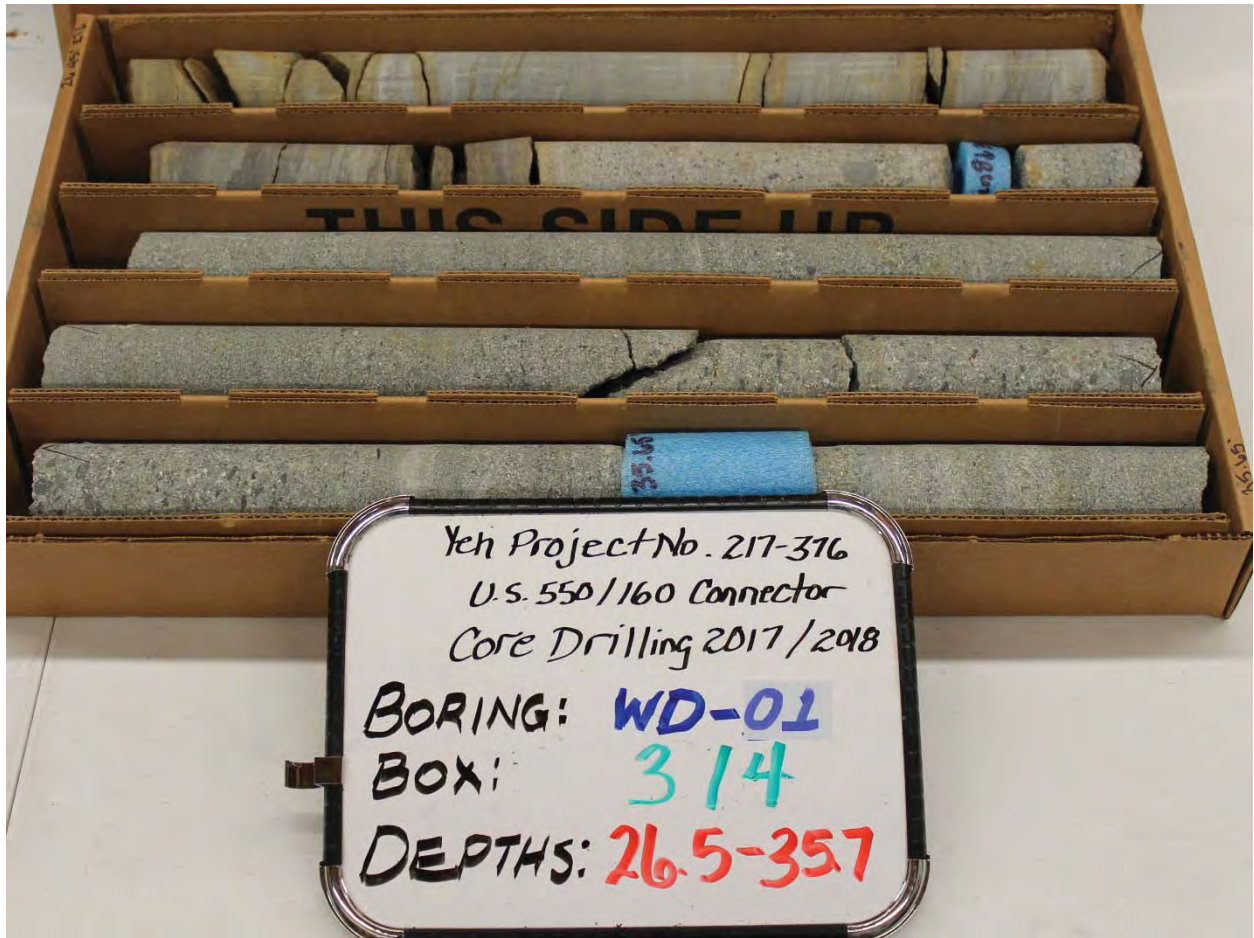 THIS SIDE UP
35.65
35.65'
Yeh Project No. 217-376
U.S. 550/160 Connector
Core Drilling 2017/2018
BORING: WD-01
BOX: 3/4
DEPTHS: 26.5-35.7